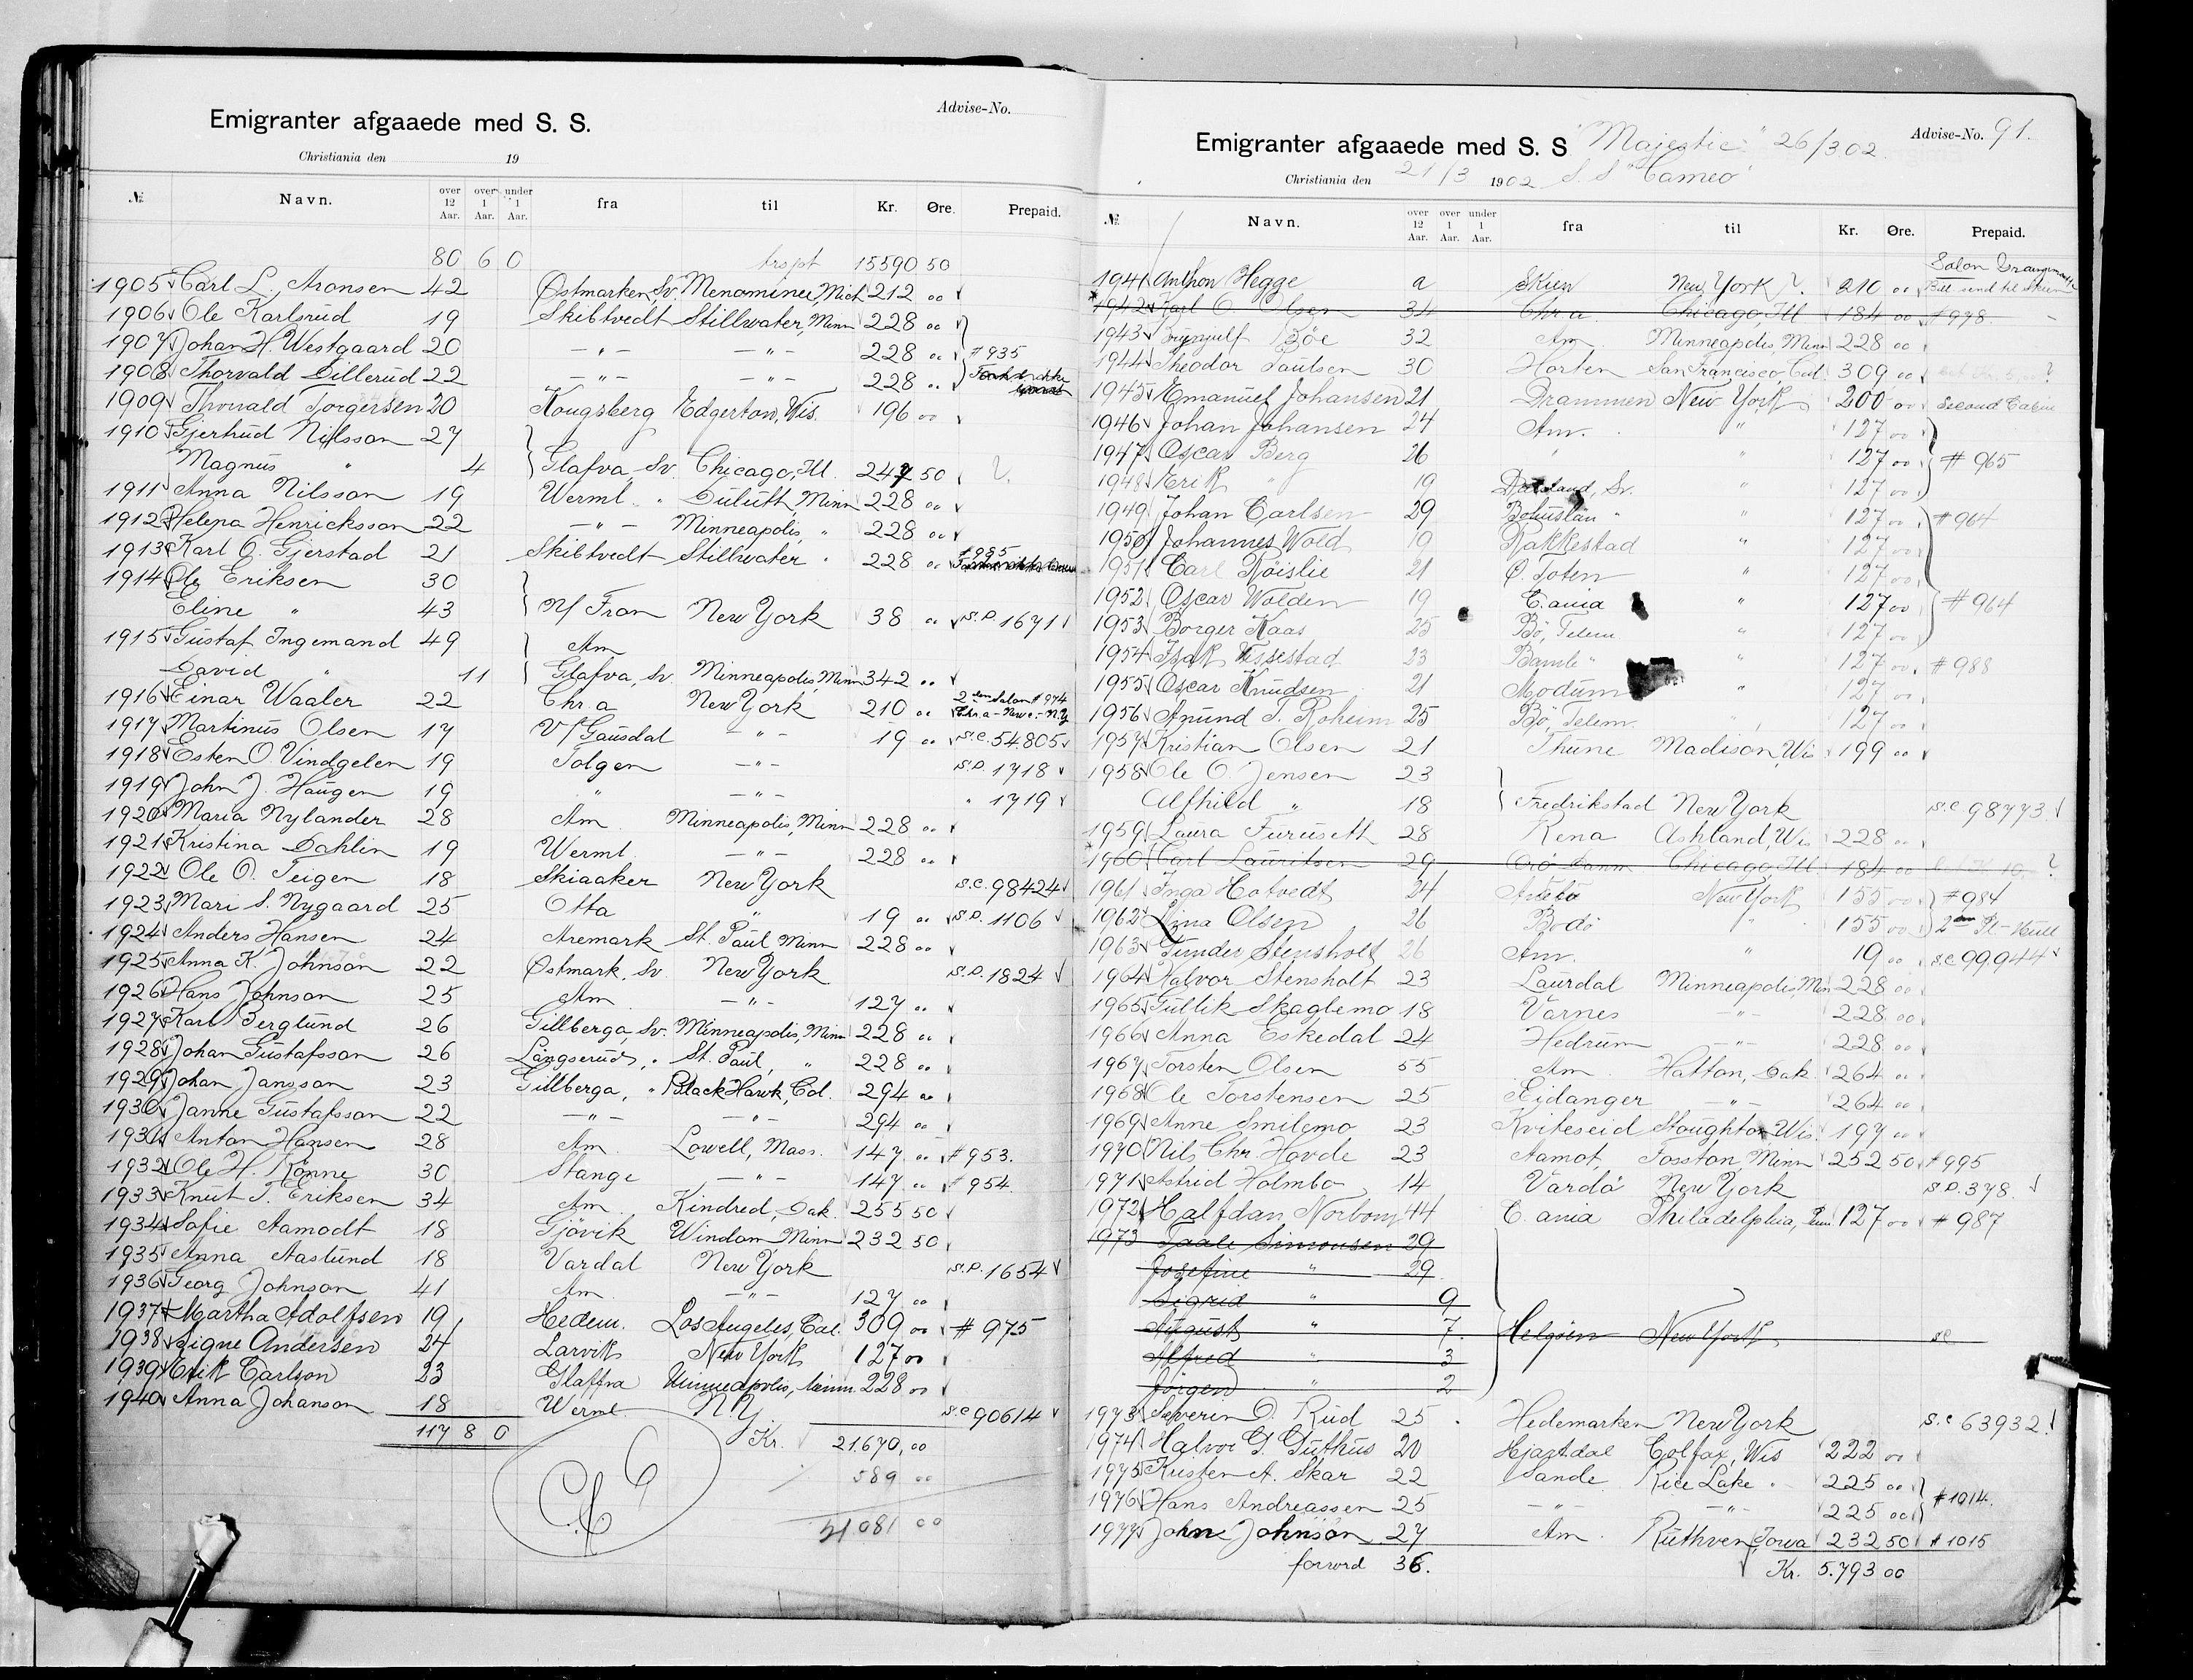 Emigranter afgaaede med S. S.
Advise-No.
Christiania den 19
№ Navn. over 12 Aar. over 1 Aar. under 1 Aar. fra til Kr. Øre. Prepaid.
80 6 0 trspt 15590 50
1905 Carl L. Aronsen 42 Østmarken, Sv. Menominee Mich 212 00
1906 Ole Karlsrud 19 Skibtvedt Stillwater, Minn 228 00
1907 Johan H. Westgaard 20 —"— —"— 228 00 # 935
1908 Thorvald Dillerud 22 —"— —"— 228 00
1909 Thorvald Torgersen 20 Kongsberg Edgerton, Wis. 196 00
1910 Gjertrud Nilsson 27
Magnus " 4 Glafva, Sv. Chicago, Ill. 247 50
1911 Anna Nilsson 19 Werml. " Duluth, Minn 228 00
1912 Helena Henricksson 22 —"— Minneapolis, " 228 00
1913 Karl O. Gjerstad 21 Skibtvedt Stillwater " 228 00 # 935
1914 Ole Eriksen 30
Eline " 43 N/ Fron New York 38 00 S.P. 1671
1915 Gustaf Ingemand 49 Am
David " 11 Glafva, Sv Minneapolis, Minn 342 00
1916 Einar Waaler 22 Chr.a New York 210 00 2den Salon # 974 Chr.a - Newc. - N.Y.
1917 Martinus Olsen 17 V/ Gausdal —"— 19 00 S.C. 54.805
1918 Esten O. Vindgelen 19 Tolgen —"— S.P. 1718
1919 John J. Haugen 19 " —"— " 1719
1920 Maria Nylander 28 Am Minneapolis, Minn 228 00
1921 Kristina Dahlin 19 Werml. —"— 228 00
1922 Ole O. Teigen 18 Skiaaker New York S.C. 98424
1923 Mari S. Nygaard 25 Otta " 19 00 S.P. 1106
1924 Anders Hansen 24 Aremark St. Paul Minn 228 00
1925 Anna K. Johnson 22 Østmark, Sv. New York S.P. 1824
1926 Hans Johnson 25 Am —"— 127 00
1927 Karl Berglund 26 Gillberga, Sv. Minneapolis, Minn 228 00
1928 Johan Gustafsson 26 Långserud, " St. Paul, " 228 00
1929 Johan Jansson 23 Gillberga, " Black Hawk, Col. 294 00
1930 Janne Gustafsson 22 —"— —"— 294 00
1931 Anton Hansen 28 Am Lowell, Mass. 147 00 # 953.
1932 Ole H. Rönne 30 Stange —"— 147 00 # 954.
1933 Knut T. Eriksen 34 Am. Kindred, Dak. 255 50
1934 Sofie Aamodt 18 Gjövik Windom Minn 232 50
1935 Anna Aaslund 18 Vardal New York S.P. 1654
1936 Georg Johnson 41 Am. —"— 127 00
1937 Martha Adolfsen 19 Hedem. Los Angeles, Cal. 309 00 # 975
1938 Signe Andersen 24 Larvik New York 127 00
1939 Erik Carlson 23 Glaffva Minneapolis, Minn. 228 00
1940 Anna Johanson 18 Werml. N.Y. S.C 90614
117 8 0 Kr. 21.670,00
589 00
21 081 00
Emigranter afgaaede med S. S "Majestic" 26/3 02.
Advise-No. 91.
Christiania den 21/3 1902 S. S "Cameo"
№ Navn. over 12 Aar. over 1 Aar. under 1 Aar. fra til Kr. Øre. Prepaid.
1941 Anthon Hegge a Skien New York 210 00 Salon Bill send til Skien
1942 Karl O. Olsen 34 Chr a Chicago, Ill 184 00 # 978
1943 Brynjulf Böe 32 Am Minneapolis, Minn 228 00
1944 Theodor Paulsen 30 Horten San Francisco, Cal. 309 00
1945 Emanuel Johansen 21 Drammen New York 200 00 Second Cabin
1946 Johan Johansen 24 Am. " 127 00
1947 Oscar Berg 26 " " 127 00 # 965
1948 Erik " 19 Dalsland, Sv. " 127 00
1949 Johan Carlsen 29 Bohuslän " " 127 00 # 964
1950 Johannes Wold 19 Rakkestad " 127 00
1951 Carl Röislie 21 Ø. Toten " 127 00
1952 Oscar Wolden 19 C.ania " 127 00 # 964
1953 Borger Kaas 25 Bö, Telem " 127 00
1954 Isak Tessestad 23 Bamle " " 127 00 # 988
1955 Oscar Knudsen 21 Modum " 127 00
1956 Anund T. Roheim 25 Bö, Telem. " 127 00
1957 Kristian Olsen 21 Thune Madison, Wis 199 00
1958 Ole O. Jensen 23
Alfhild " 18 Fredrikstad New York S.C 98773
1959 Laura Furuseth 28 Rena Ashland, Wis 228 00
1960 Carl Lauritsen 29 Chicago, Ill 184 00
1961 Inga Hotvedt 24 New York 155 00 # 984
1962 Lina Olsen 26 Bodö " 155 00 2den Pl - Hull
1963 Gunder Stensholt 26 Am. " 19 00 S.C 99.944
1964 Halvor Stensholt 23 Laurdal Minneapolis, Min 228 00
1965 Gullik Skaglemo 18 Varnes —"— 228 00
1966 Anna Eskedal 24 Hedrum —"— 228 00
1967 Torsten Olsen 55 Am Hatton, Dak. 264 00
1968 Ole Torstensen 25 Eidanger —"— 264 00
1969 Anne Smilemo 23 Kviteseid Stoughton Wis. 197 00
1970 Nils Chr. Hovde 23 Aamot Fosston, Minn 252 50 # 995
1971 Astrid Holmbo 14 Vardö New York S.P. 378.
1972 Halfdan Norbom 44 C. ania Philadelphia, Penn 127 00 # 987
1973 Paale Simonsen 29
Josefine " 29
Sigrid " 9
August " 7 Helgöen New York SC
Alfred " 3
Jörgen " 2
1973 Severin O. Rud 25 Hedemarken New York S.C 63932
1974 Halvor G. Guthus 20 Hjartdal Colfax, Wis 222 00
1975 Kristen A. Skar 22 Sande Rice Lake " 225 00
1976 Hans Andreassen 25 —"— —"— 225 00 # 1014.
1977 John Johnson 27 Am. Ruthven, Iowa 232 50 # 1015
forword 36. Kr. 5.793 00